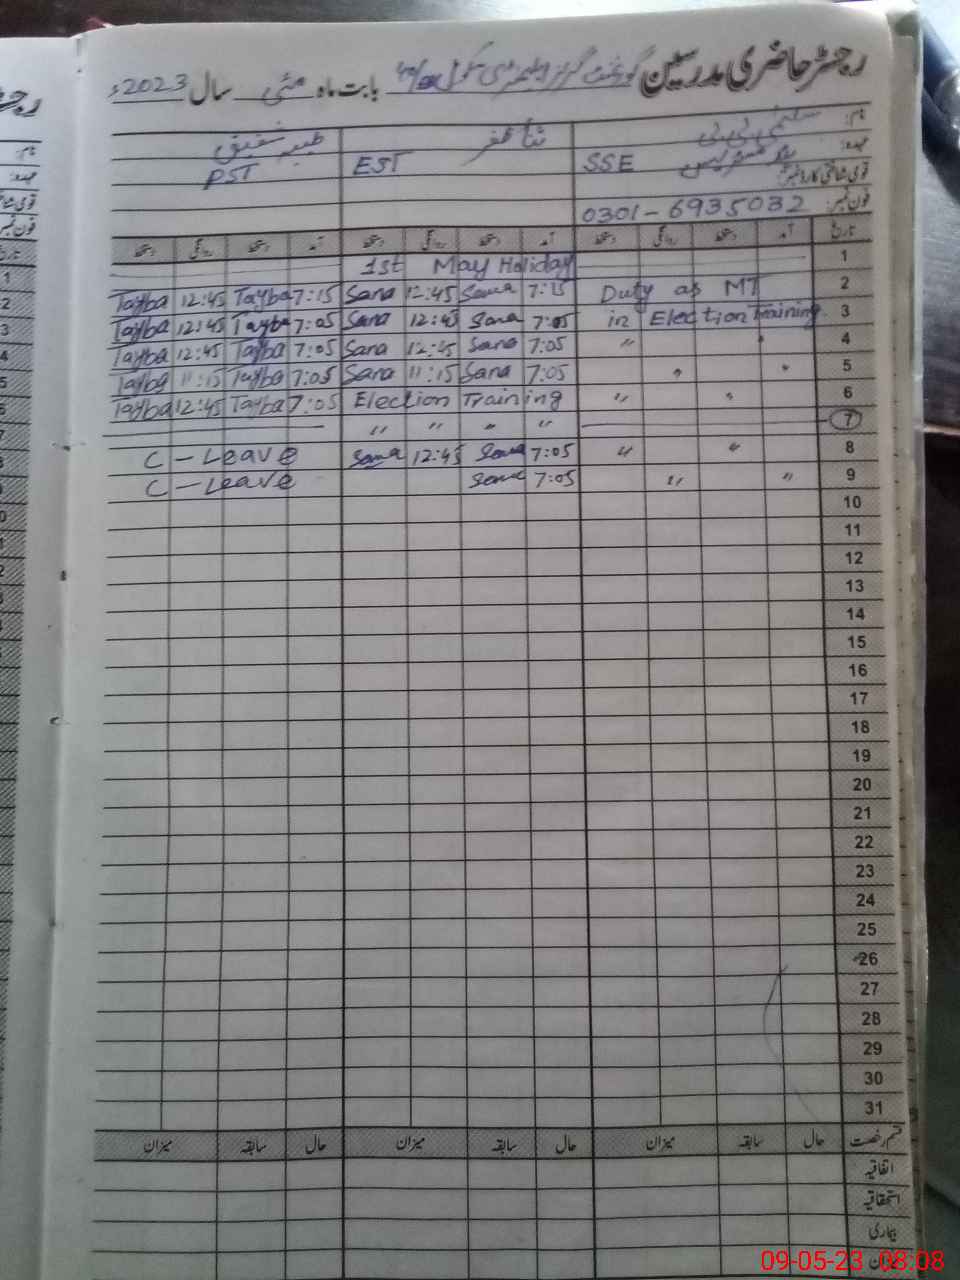 رجسٹر حاضری مدرسین گورنمنٹ گرلز ایلیمنٹری سکول بابت ماہ مئی سال 2023ء
نام: سلمیٰ بی بی ثنا ظفر طیبہ شفیق
عہدہ: ہیڈ مسٹریس SSE EST PST
قومی شناختی کارڈ نمبر
فون نمبر: 0301-6935032
تاریخ آمد دستخط روانگی دستخط آمد دستخط روانگی دستخط آمد دستخط روانگی دستخط
1st May Holiday 1
Tayba 12:45 Tayba 7:15 Sana 12:45 Sana 7:15 Duty as MT 2
Tayba 12:45 Tayba 7:05 Sana 12:45 Sana 7:05 in Election Training. 3
Tayba 12:45 Tayba 7:05 Sana 12:45 Sana 7:05 〃 〃 4
Tayba 11:15 Tayba 7:05 Sana 11:15 Sana 7:05 〃 〃 5
Tayba 12:45 Tayba 7:05 Election Training 〃 〃 6
〃 〃 〃 〃 7
C - Leave Sana 12:45 Sana 7:05 〃 〃 8
C - Leave Sana 7:05 〃 〃 9
10
11
12
13
14
15
16
17
18
19
20
21
22
23
24
25
26
27
28
29
30
31
قسم رخصت حال سابقہ میزان حال سابقہ میزان حال سابقہ میزان
اتفاقیہ
استحقاقیہ
بیماری
09-05-23 08:08